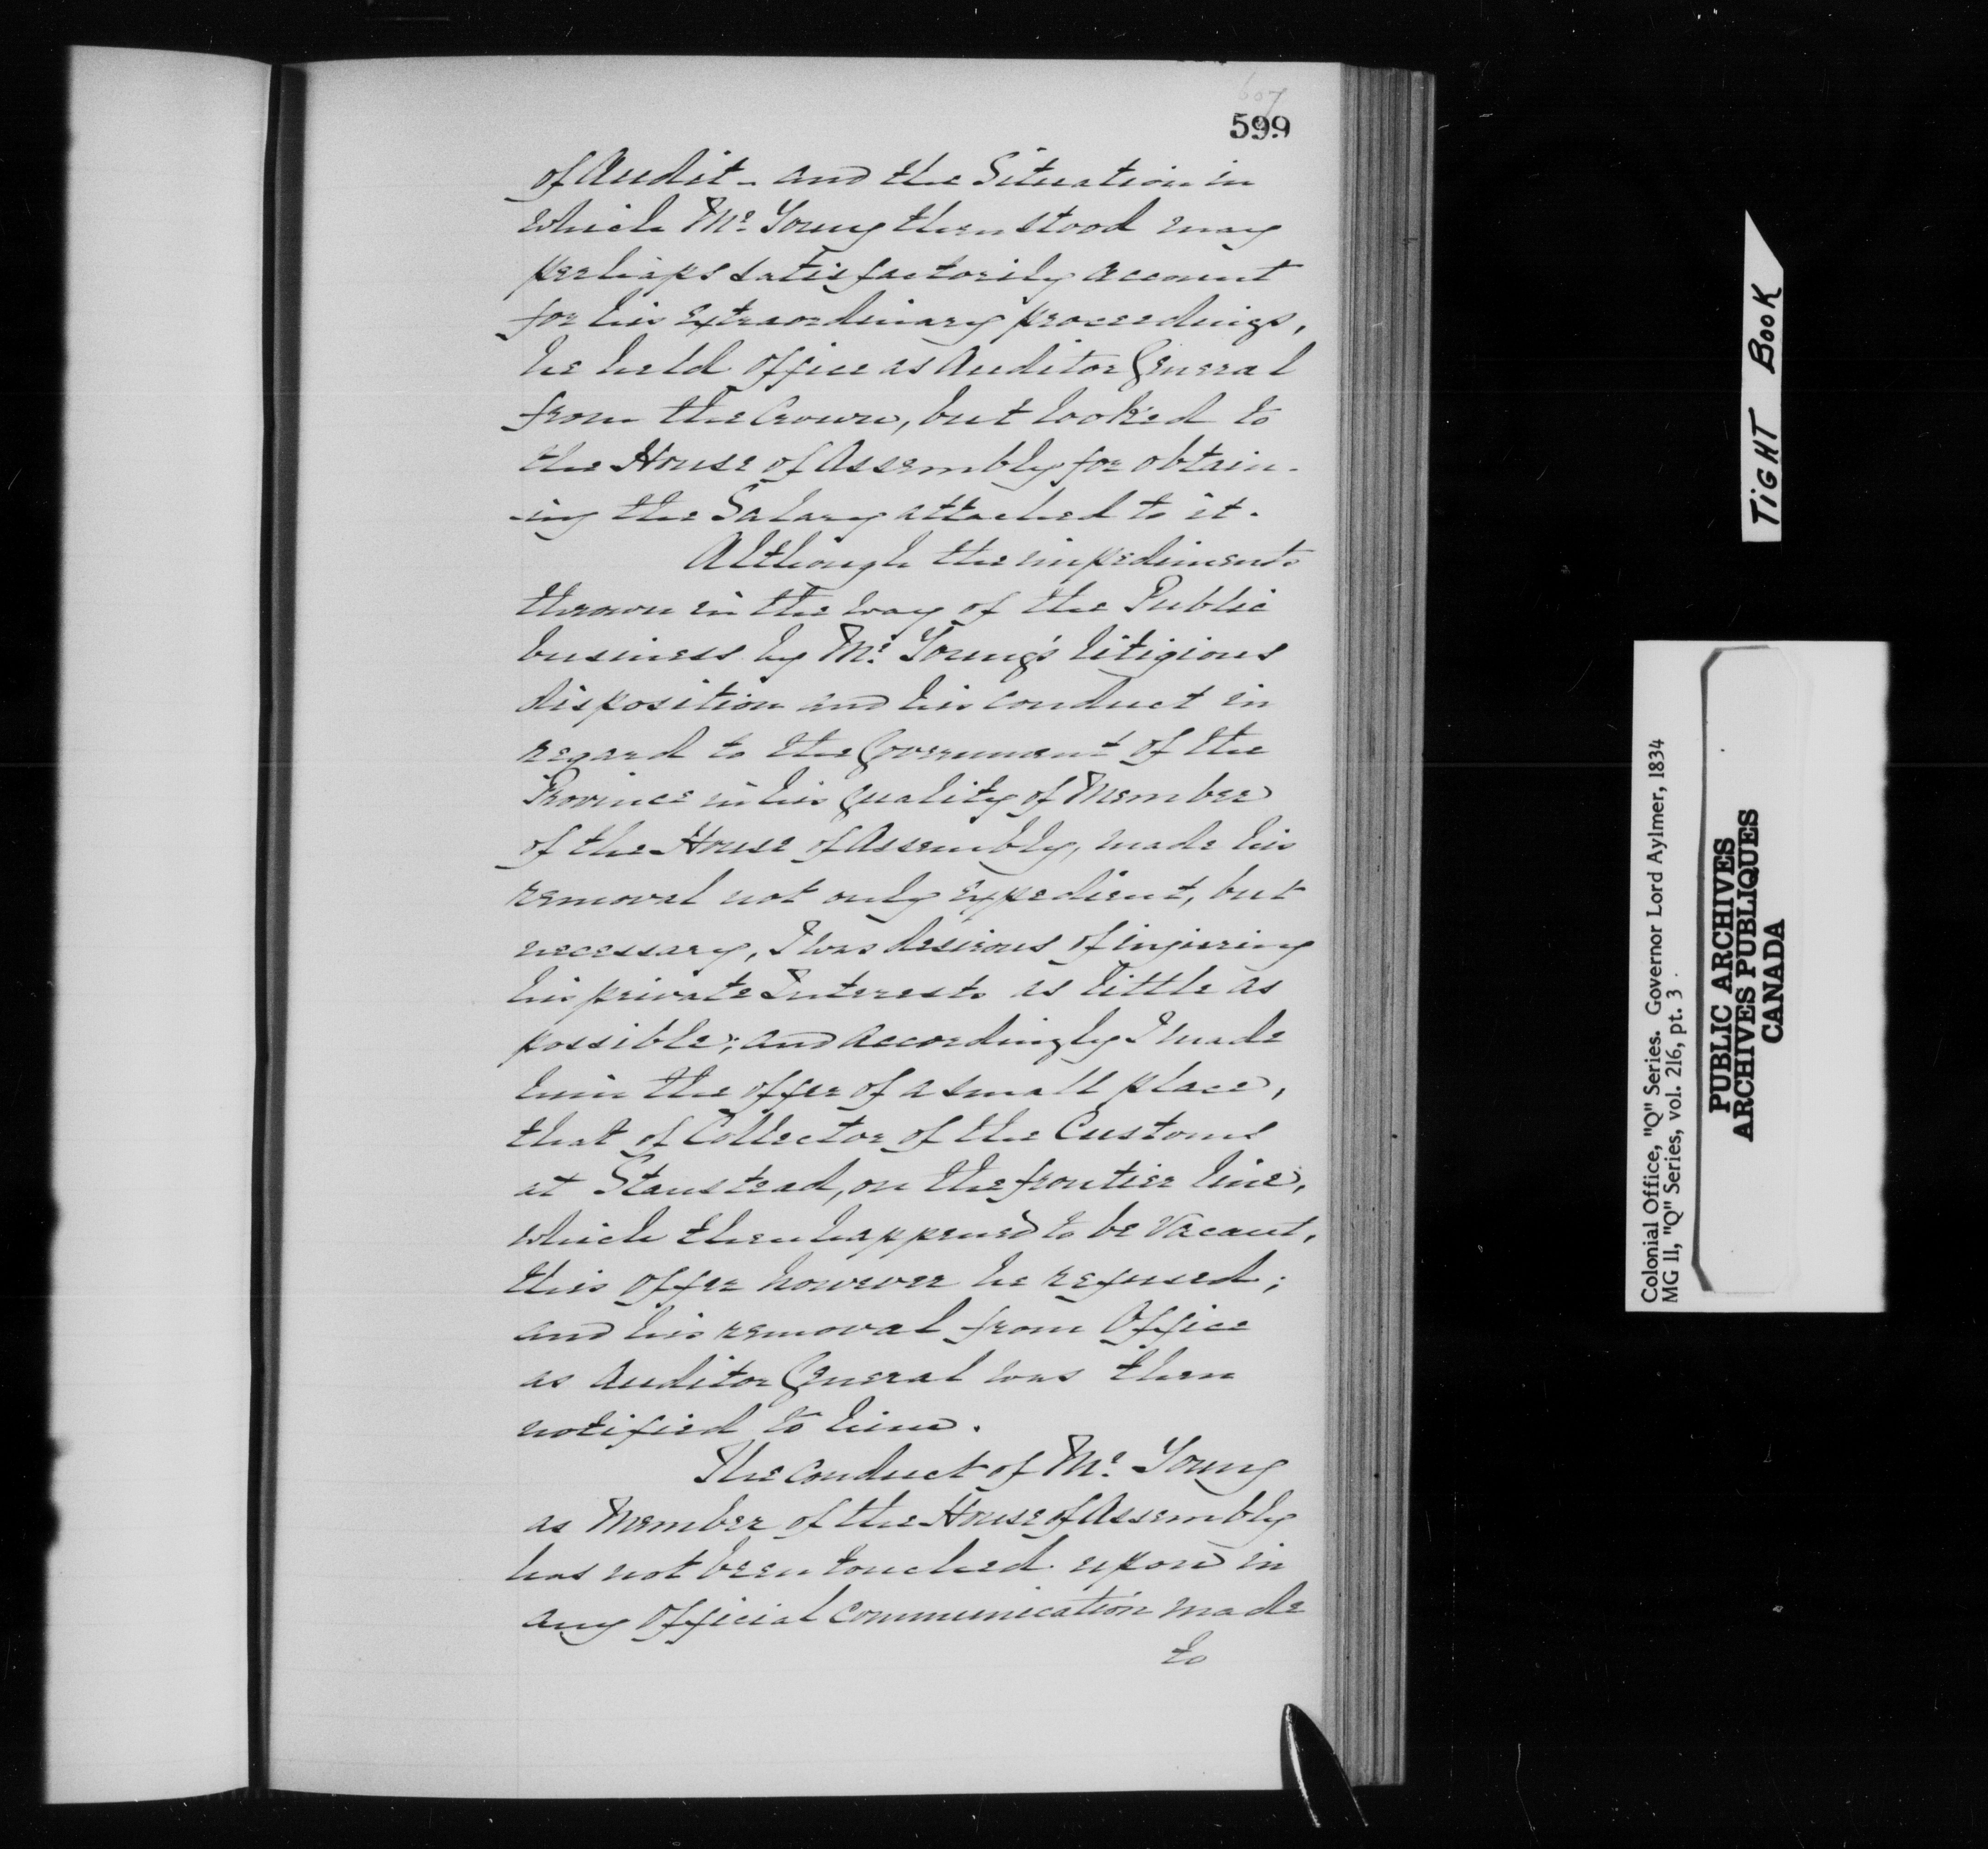 607
599
of Audit - and the Situation in
which Mr. Young then stood may
perhaps satisfactorily account
for his extraordinary proceedings,
he held office as Auditor General
from the Crown, but looked to
the House of Assembly for obtain-
-ing the Salary attached to it.
Although the impediments
thrown in the way of the Public
business by Mr. Young's litigious
disposition and his conduct in
regard to the Government of the
Province in his quality of Member
of the House of Assembly, made his
removal not only expedient, but
necessary, I was desirous of injuring
his private Interests as little as
possible; and accordingly I made
him the offer of a small place,
that of Collector of the Customs
at Stanstead, on the frontier line,
which then happened to be Vacant,
this offer however he refused;
and his removal from Office
as Auditor General was then
notified to him.
The conduct of Mr. Young
as Member of the House of Assembly
has not been touched upon in
any Official communication made
to
TIGHT BOOK
Colonial Office, "Q" Series. Governor Lord Aylmer, 1834
MG 11, "Q" Series, vol. 216, pt. 3.
PUBLIC ARCHIVES
ARCHIVES PUBLIQUES
CANADA